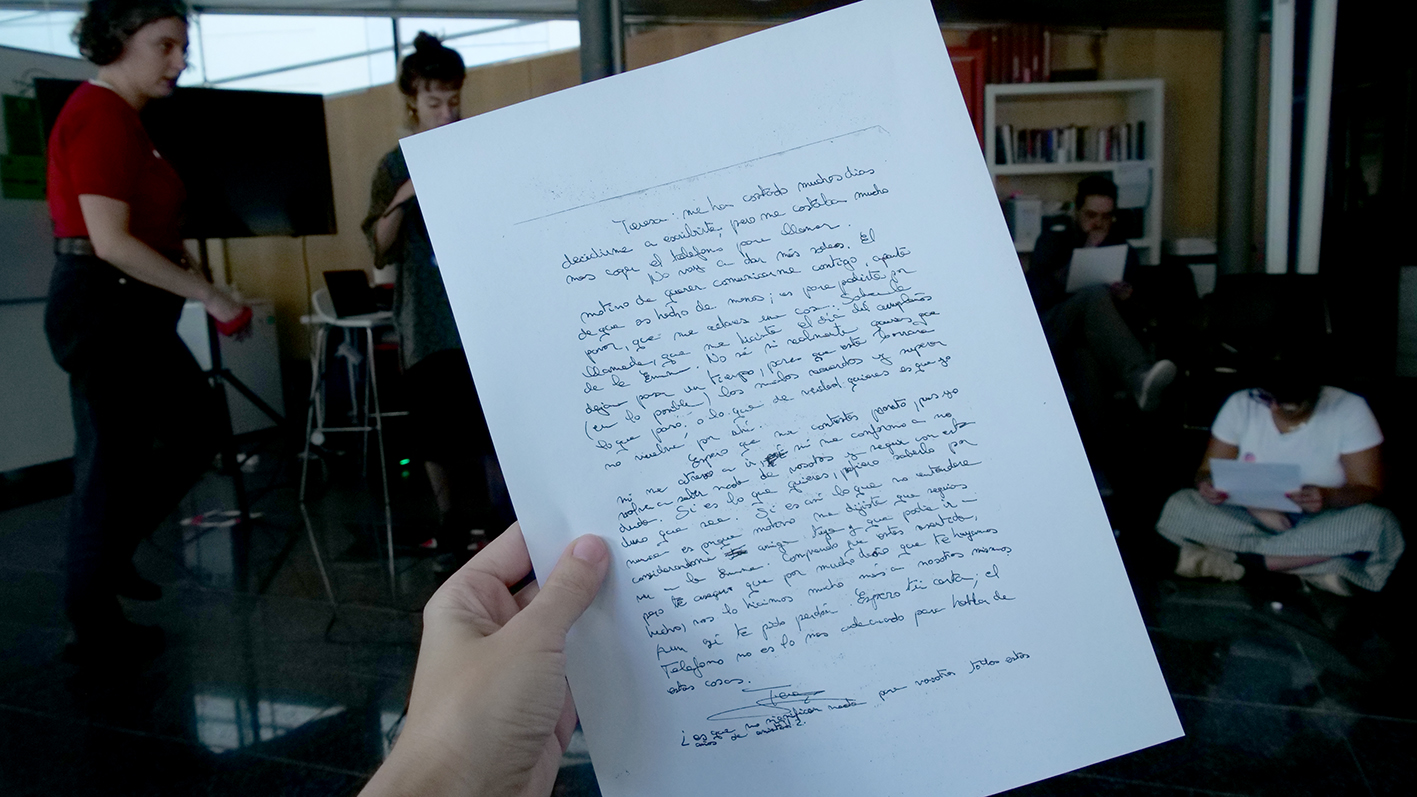 Teresa: me han costado muchos dias
decidirme a escribirte, pero me costaba mucho
mas coger el telefono para llamar.
No voy a dar más rodeos. El
motivo de querer comunicarme contigo, aparte
de que os hecho de menos; es para pedirte por
favor, que me aclares una cosa. Sobre la
llamada, que me hiciste el día del cumpleaños
de la Emma. No sé si realmente quieres que
dejar pasar un tiempo, para que esto borrará
(en lo posible) los malos recuerdos y superar
lo que pasó; o lo que de verdad quieres es que yo
no vuelva por ahí.
Espero que me contestes pronto, pues yo
ni me atrevo a ir, ni me conformo a no
volver a saber nada de vosotros y seguir con esta
duda. Si es lo que quieres, prefiero saberlo por
duro que sea. Si es así lo que no entenderé
nunca es porque motivo me dijiste que seguías
considerandome amiga tuya y que podía ir
ver a la Emma. Comprendo que estés resentida,
pero te aseguro que por mucho daño que te hayamos
hecho, nos lo hicimos mucho más a nosotros mismos
Aun así te pido perdón. Espero tu carta; el
Telefono no es lo mas adecuado para hablar de
estas cosas.
¿es que no significan nada para vosotros todos estos
años de amistad?.